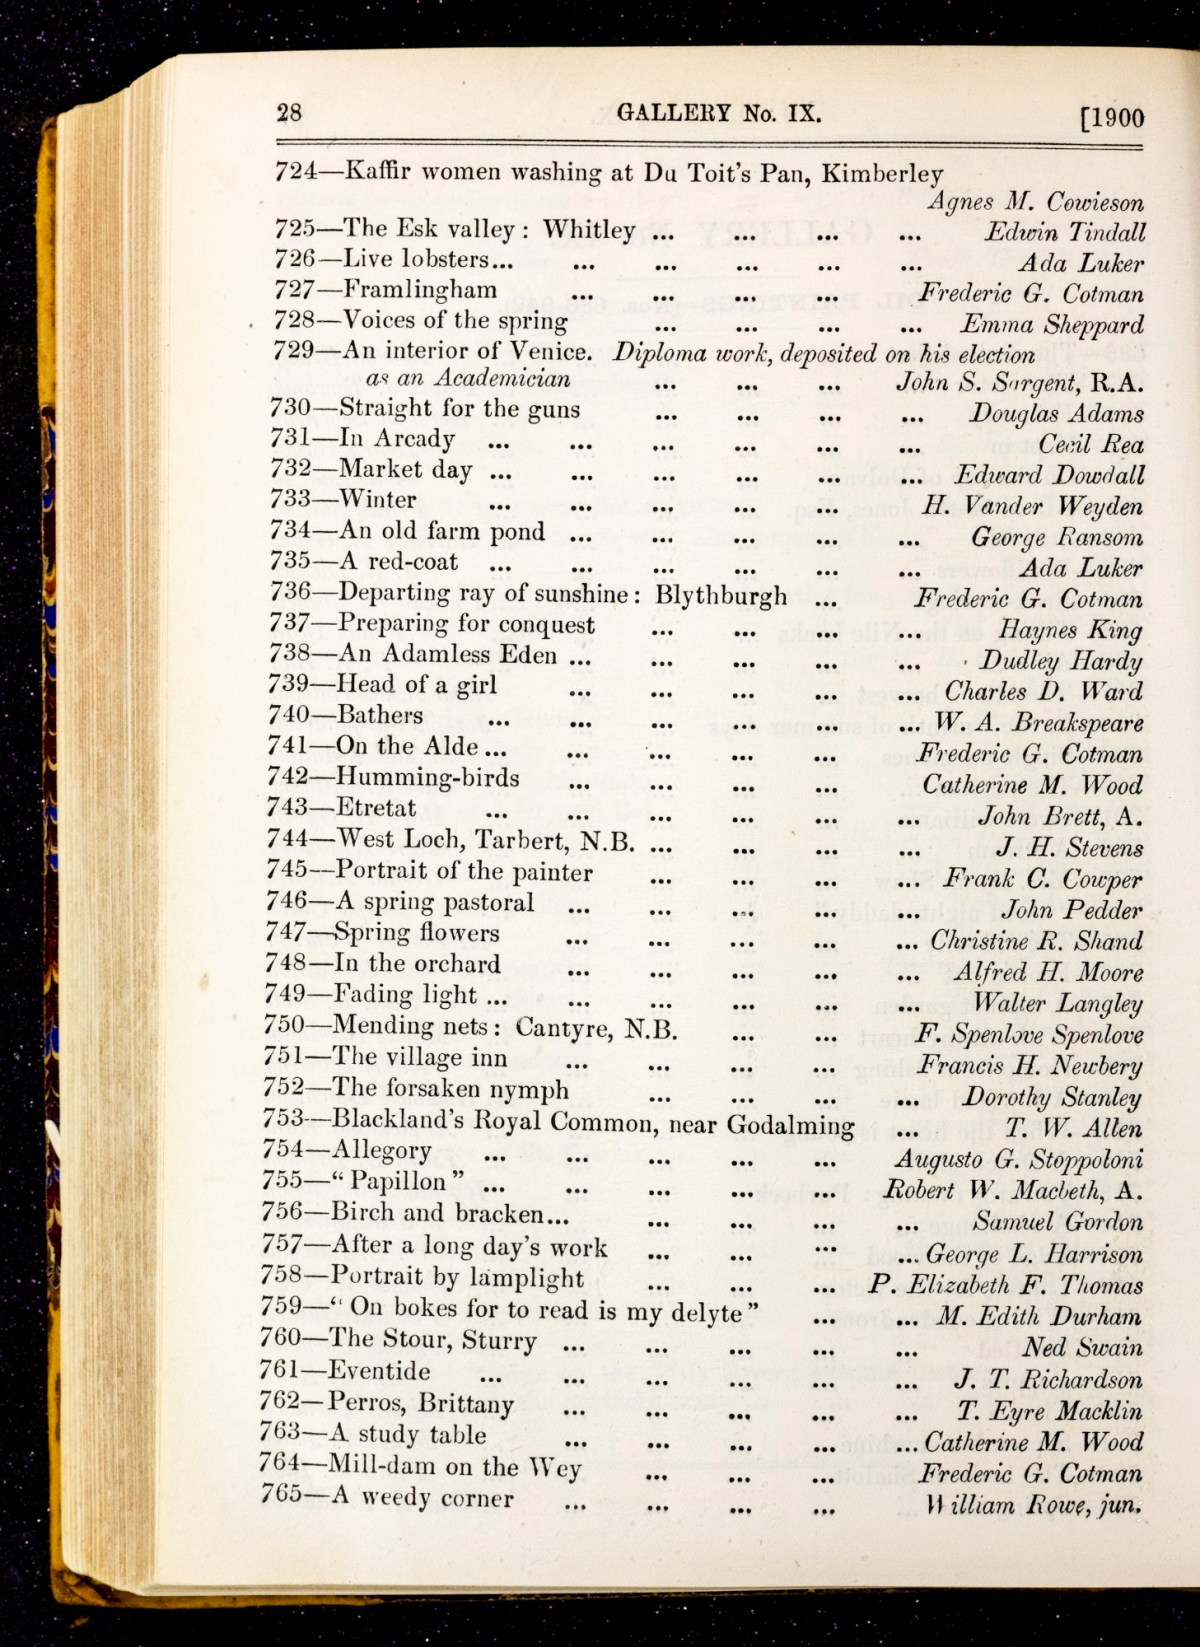 28 GALLERY No. IX. [1900
724—Kaffir women washing at Du Toit's Pan, Kimberley
Agnes M. Cowieson
725—The Esk valley : Whitley ... ... ... ... Edwin Tindall
726—Live lobsters... ... ... ... ... ... Ada Luker
727—Framlingham ... ... ... ... Frederic G. Cotman
728—Voices of the spring ... ... ... ... Emma Sheppard
729—An interior of Venice. Diploma work, deposited on his election
as an Academician ... ... ... John S. Sargent, R.A.
730—Straight for the guns ... ... ... ... Douglas Adams
731—In Arcady ... ... ... ... ... ... Cecil Rea
732—Market day ... ... ... ... ... ... Edward Dowdall
733—Winter ... ... ... ... ... H. Vander Weyden
734—An old farm pond ... ... ... ... ... George Ransom
735—A red-coat ... ... ... ... ... ... Ada Luker
736—Departing ray of sunshine : Blythburgh ... Frederic G. Cotman
737—Preparing for conquest ... ... ... ... Haynes King
738—An Adamless Eden ... ... ... ... ... Dudley Hardy
739—Head of a girl ... ... ... ... ... Charles D. Ward
740—Bathers ... ... ... ... ... ... W. A. Breakspeare
741—On the Alde ... ... ... ... ... Frederic G. Cotman
742—Humming-birds ... ... ... ... Catherine M. Wood
743—Etretat ... ... ... ... ... ... John Brett, A.
744—West Loch, Tarbert, N.B. ... ... ... ... J. H. Stevens
745—Portrait of the painter ... ... ... ... Frank C. Cowper
746—A spring pastoral ... ... ... ... ... John Pedder
747—Spring flowers ... ... ... ... ... Christine R. Shand
748—In the orchard ... ... ... ... ... Alfred H. Moore
749—Fading light ... ... ... ... ... ... Walter Langley
750—Mending nets : Cantyre, N.B. ... ... F. Spenlove Spenlove
751—The village inn ... ... ... ... Francis H. Newbery
752—The forsaken nymph ... ... ... ... Dorothy Stanley
753—Blackland's Royal Common, near Godalming ... T. W. Allen
754—Allegory ... ... ... ... ... Augusto G. Stoppoloni
755—“ Papillon ” ... ... ... ... ... Robert W. Macbeth, A.
756—Birch and bracken... ... ... ... ... Samuel Gordon
757—After a long day's work ... ... ... ... George L. Harrison
758—Portrait by lamplight ... ... ... P. Elizabeth F. Thomas
759—“ On bokes for to read is my delyte ” ... ... M. Edith Durham
760—The Stour, Sturry ... ... ... ... ... Ned Swain
761—Eventide ... ... ... ... ... ... J. T. Richardson
762—Perros, Brittany ... ... ... ... ... T. Eyre Macklin
763—A study table ... ... ... ... ... Catherine M. Wood
764—Mill-dam on the Wey ... ... ... Frederic G. Cotman
765—A weedy corner ... ... ... ... William Rowe, jun.